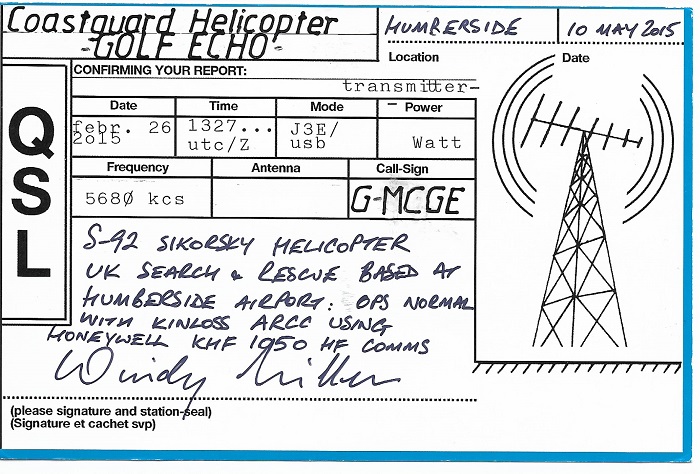 Coastguard Helicopter
-GOLF ECHO-
HUMBERSIDE
10 MAY 2015
Location
Date
CONFIRMING YOUR REPORT:
transmitter-
QSL
Date
Time
Mode
– Power
febr. 26
2015
1327...
utc/Z
J3E/
usb
Watt
Frequency
Antenna
Call-Sign
568Ø kcs
G-MCGE
S-92 SIKORSKY HELICOPTER
UK SEARCH & RESCUE BASED AT
HUMBERSIDE AIRPORT: OPS NORMAL
WITH KINLOSS ARCC USING
HONEYWELL KHF 1050 HF COMMS
Windy Miller
(please signature and station-seal)
(Signature et cachet svp)